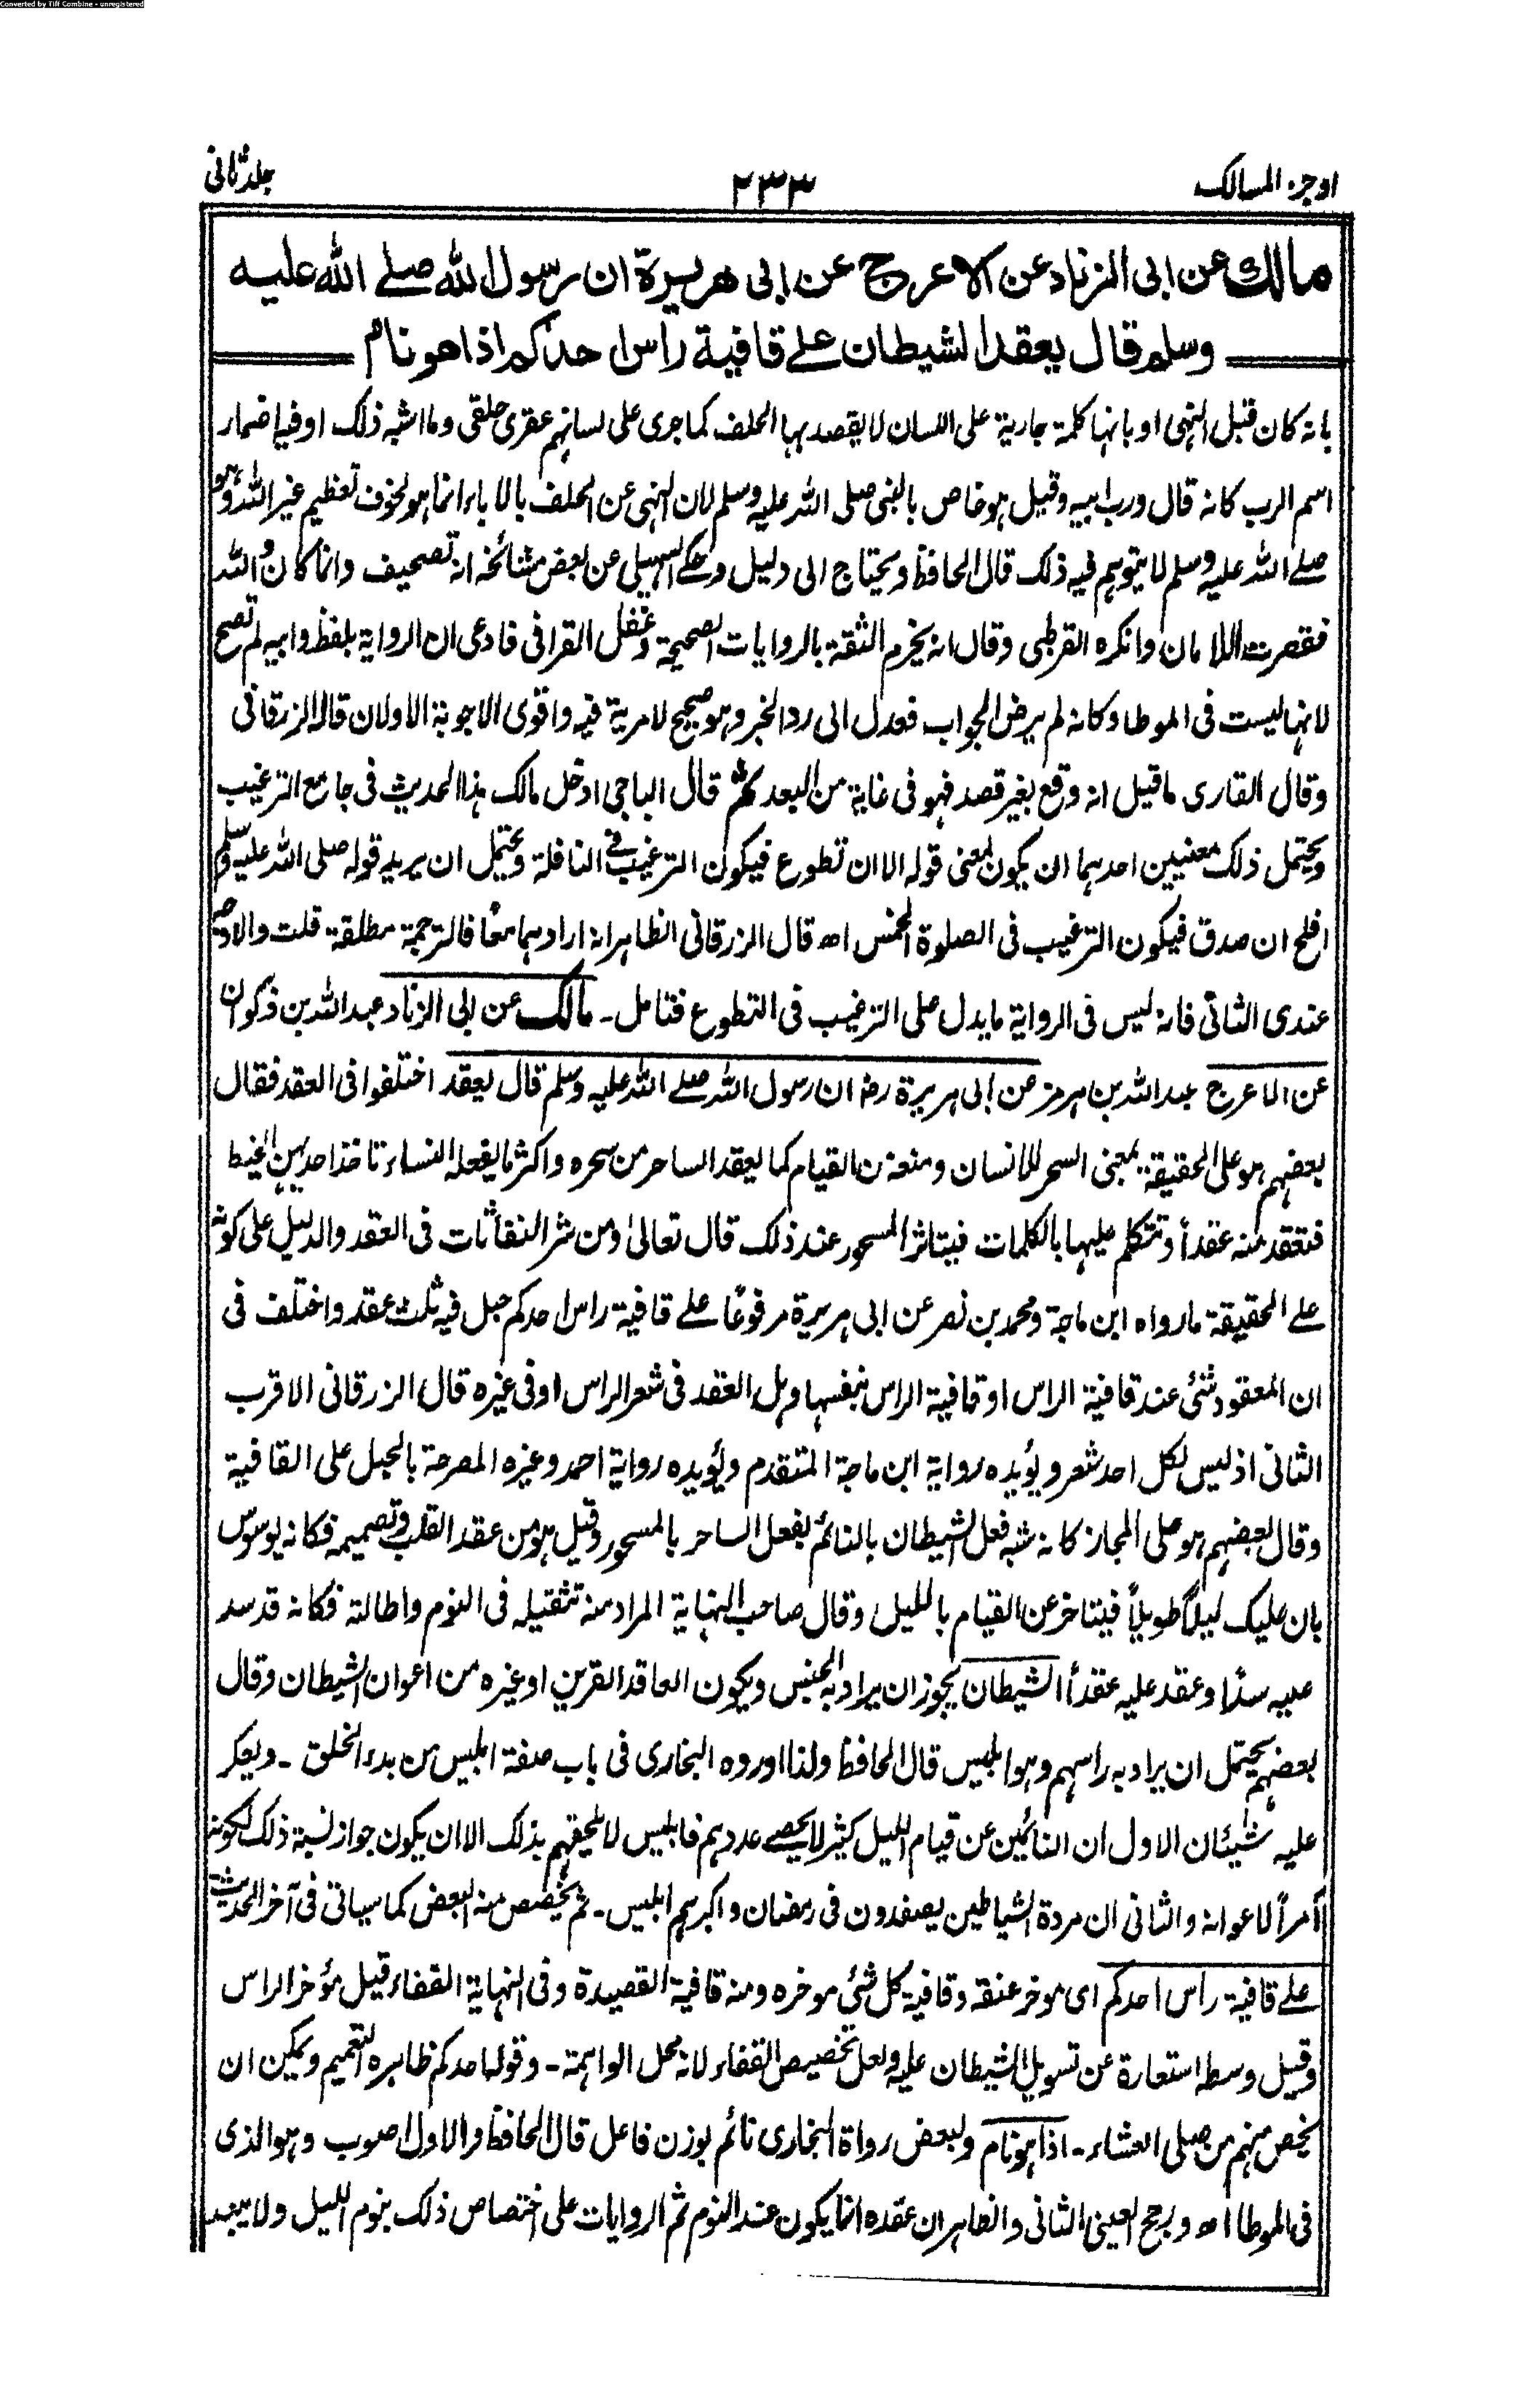 Converted by Tiff Combine - unregistered
اوجز المسالك
۲۳۳
جلد ثانی
مالك عن ابى الزناد عن الاعرج عن ابى هريرة ان رسول الله صلے الله عليه
وسلم قال يعقد الشيطان علے قافية راس احدكم اذا هو نام
بانه كان قبل النهى او بانها كلمة جارية على اللسان لا يقصد بها الحلف كما جرى على لسانهم عقرى حلقى وما اشبه ذلك او فيها ضمار
اسم الرب كانه قال ورب ابيه وقيل هو خاص بالنبى صلى الله عليه وسلم لان النهى عن الحلف بالاباء انما هو لخوف تعظيم غير الله وهو
صلے الله عليه وسلم لا يتوهم فيه ذلك قال الحافظ ويحتاج الى دليل وحكے السهيلى عن بعض مشائخه انه تصحيف وانما كان والله
فقصرت اللامان وانكره القرطبى وقال انه يخرم الثقة بالروايات الصحيحة وغفل القرافى فادعى ان الرواية بلفظ وابيه لم تصح
لانها ليست فى الموطا وكانه لم يرض الجواب فعدل الى رد الخبر وهو صحيح لا مرية فيه واقوى الاجوبة الاولان قاله الزرقانى
وقال القارى ما قيل انه وقع بغير قصد فهو فى غاية من البعد ثم قال الباجى ادخل مالك هذا الحديث فى جامع الترغيب
ويحتمل ذلك معنيين احدهما ان يكون لمعنى قوله الا ان تطوع فيكون الترغيب فى النافلة ويحتمل ان يريد قوله صلى الله عليه وسلم
افلح ان صدق فيكون الترغيب فى الصلوة الخمس اه قال الزرقانى الظاهر انه ارادهما معًا فالترجمة مطلقة قلت والاوجه
عندى الثانى فانه ليس فى الرواية ما يدل على الترغيب فى التطوع فتامل ـ مالك عن ابى الزناد عبد الله بن ذكوان
عن الاعرج عبد الله بن هرمز عن ابى هريرة رض ان رسول الله صلے الله عليه وسلم قال يعقد اختلفوا فى العقد فقال
بعضهم هو على الحقيقة بمعنى السحر للانسان ومنعه من القيام كما يعقد الساحر من سحره واكثر ما يفعله النساء تاخذ احداهن الخيط
فتعقد منه عقداً وتتكلم عليها بالكلمات فيتاثر المسحور عند ذلك قال تعالىٰ ومن شر النفاثات فى العقد والدليل على كونه
علے الحقيقة ما رواه ابن ماجة ومحمد بن نصر عن ابى هريرة مرفوعًا علے قافية راس احدكم حبل فيه ثلث عقد واختلف فى
ان المعقود شئ عند قافية الراس او قافية الراس نفسها وهل العقد فى شعر الراس او فى غيره قال الزرقانى الاقرب
الثانى اذ ليس لكل احد شعر ويؤيده رواية ابن ماجة المتقدم ويؤيده رواية احمد وغيره المصرحة بالحبل على القافية
وقال بعضهم هو على المجاز كانه شبه فعل الشيطان بالنائم بفعل الساحر بالمسحور وقيل هو من عقد القلب وتصميمه فكانه يوسوس
بان عليك ليلاً طويلاً فيتاخر عن القيام بالليل وقال صاحب النهاية المراد منه تثقيله فى النوم واطالته فكانه قد سد
عليه سدًا وعقد عليه عقداً الشيطان يجوز ان يراد به الجنس ويكون العاقد القرين او غيره من اعوان الشيطان وقال
بعضهم يحتمل ان يراد به راسهم وهو ابليس قال الحافظ ولذا اورده البخارى فى باب صفة ابليس من بدء الخلق ـ ويعكر
عليه شيئان الاول ان النائمين عن قيام الليل كثير لا يحصے عددهم فابليس لا يلحقهم بذلك الا ان يكون جواز نسبة ذلك لكونه
اٰمراً لاعوانه والثانى ان مردة الشياطين يصفدون فى رمضان واكبرهم ابليس ـ ثم يخصص منه البعض كما سياتى فى آخر الحديث
علے قافية راس احدكم اى موخر عنقه وقافية كل شئ موخره ومنه قافية القصيدة وفى النهاية القفاء قيل مؤخر الراس
وقيل وسطه استعارة عن تسويل الشيطان عليه ولعل تخصيص القفاء لانه محل الواهمة ـ وقوله احدكم ظاهره التعميم ويمكن ان
يخص منهم من صلى العشاء ـ اذا هو نام ولبعض رواة البخارى نائم بوزن فاعل قال الحافظ والاول اصوب وهو الذى
فى الموطا اه ورجح العينى الثانى والظاهر ان عقده انما يكون عند النوم ثم الروايات على اختصاص ذلك بنوم الليل ولا يبعد